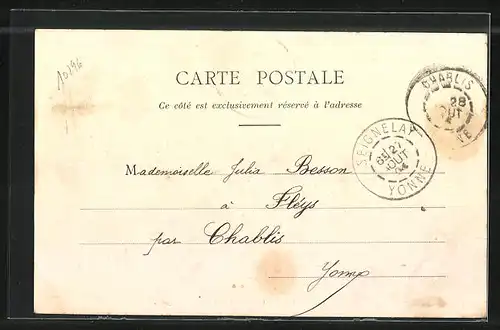 10296
CARTE POSTALE
Ce côté est exclusivement réservé à l'adresse
CHABLIS
28
OUT
NE
SEIGNELAY
27
AOUT
04
YONNE
Mademoiselle Julia Besson
à Fléys
par Chablis
Yonne